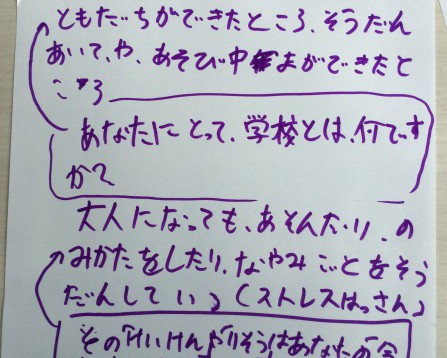 ともだちができたところ、そうだん
あいて、や、あそび中まができたと
ころ
あなたにとって、学校とは、何です
か？
大人になっても、あそんだり、の
みかたをしたり、なやみごとをそう
だんしている（ストレスはっさん）
その「けいけんや「りそうはあなたの「今